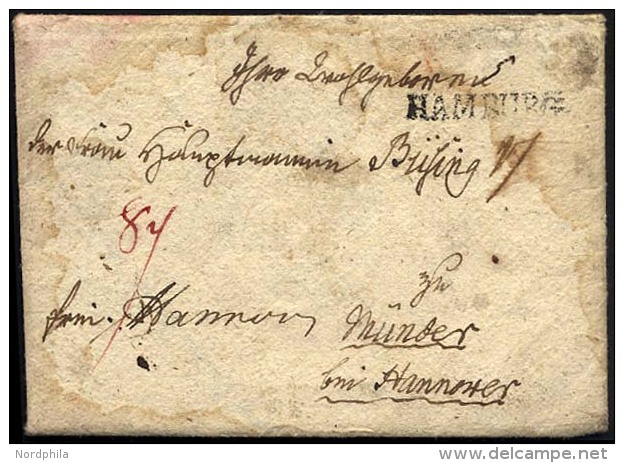 Ihro Wohlgeboren
HAMBURG
der Frau Hauptmannin Büsing
84
zu
frei. Hannover Münder
bei Hannover
Nordphila
delcampe.net